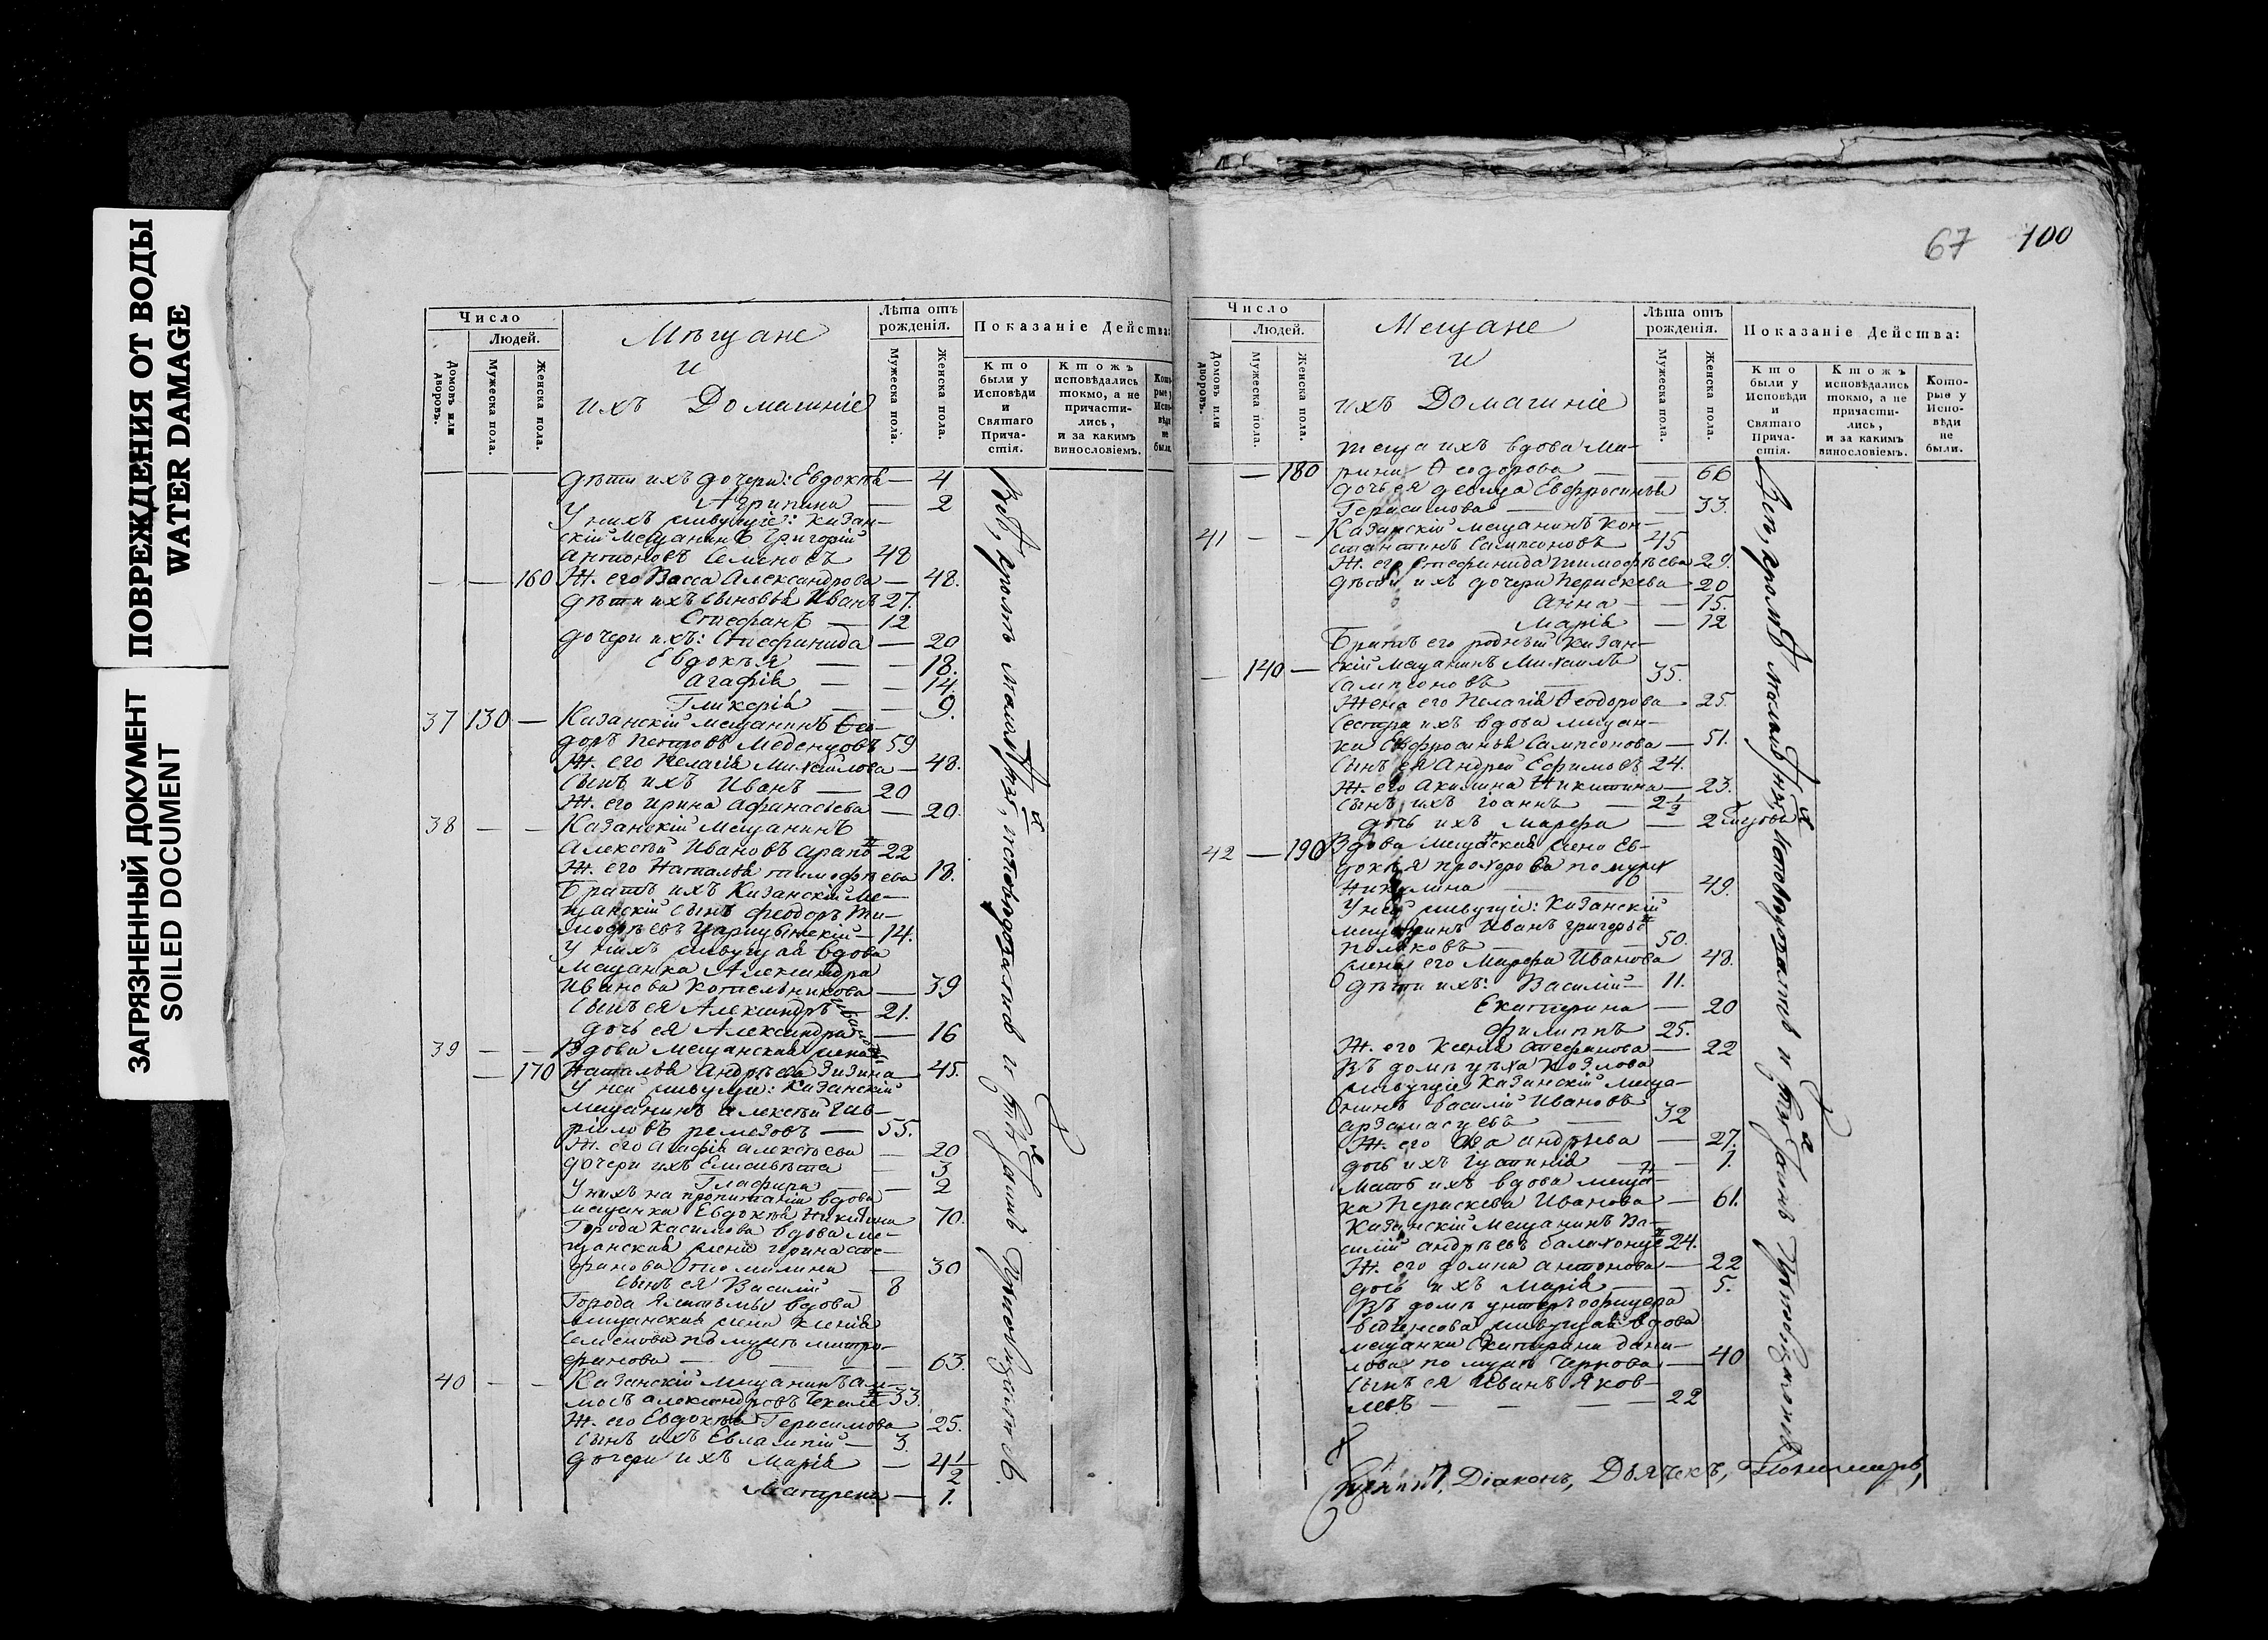 ПОВРЕЖДЕНИЯ ОТ ВОДЫ
WATER DAMAGE
ЗАГРЯЗНЕННЫЙ ДОКУМЕНТ
SOILED DOCUMENT
Число
Людей.
Домовъ или дворовъ.
Мужеска пола.
Женска пола.
Мѣщане
и
ихъ Домашніе
Лѣта отъ рожденія.
Мужеска пола.
Женска пола.
Показаніе Действа:
Кто были у Исповѣди и Святаго Прича-стія.
Ктожъ исповѣдались токмо, а не причасти-лись, и за какимъ винословіемъ.
дѣти ихъ дочери: Евдокѣя — 4
Агрипина — 2
У нихъ живущіе: Казан-
скій мещанинъ Григорій
Антоновъ Семеновъ 48
— — 160 Ж. его Васса Александрова — 48.
дѣти ихъ сыновья Иванъ 27.
Стефанъ — 12
дочери ихъ: Стефанида — 20
Евдокѣя — — 18.
Агафія — — 14.
Гликерія — — 9.
37 130 — Казанскій мещанинъ Фео-
доръ Петровъ Меденцовъ 59
Ж. его Пелагія Михайлова — 48.
сынъ ихъ Иванъ — 20
Ж. его Ирина Афанасьева — 20.
38 — — Казанскій мещанинъ
Алексѣй Ивановъ 22
Ж. его Наталья Тимофѣева 18.
Братъ ихъ Казанскій ме-
щанскій сынъ Феодоръ Ти-
мофѣевъ Царицынскій — 14.
У нихъ живущая вдова
мещанка Александра
Иванова Котельникова — 39
сынъ ея Александръ 21.
дочь ея Александра — 16
39 — — Вдова мещанская жена
— 170 Наталья Андрѣева Зизина — 45.
У нея живущіе: Казанскій
мещанинъ Алексѣй Гав-
риловъ Ремезовъ — 55.
Ж. его Агафія Алексѣева — 20
дочери ихъ Елисавѣта — 3
Глафира — — 2
У нихъ на пропитаніи вдова
мещанка Евдокѣя Никитина 70.
Города Касимова вдова ме-
щанская жена Ирина Сте-
фанова — 30
сынъ ея Василій — 8
Города Елатьмы вдова
мещанская жена Ксенія
Семенова по мужѣ Митро-
фанова — — — — 63.
40 — — Казанскій мещанинъ
Александровъ 33.
Ж. его Евдокѣя Герасимова 25.
сынъ ихъ Евлампій — 3.
дочери ихъ Марія — 4 1/2
Матрена — 1.
Всѣ, кромѣ малолѣтныхъ, исповѣдовались и Святыхъ Таинъ Пріобщались.
67 100
Число
Людей.
Домовъ или дворовъ.
Мужеска пола.
Женска пола.
Мещане
и
ихъ Домашніе
Лѣта отъ рожденія.
Мужеска пола.
Женска пола.
Показаніе Действа:
Кто были у Исповѣди и Святаго Прича-стія.
Ктожъ исповѣдались токмо, а не причасти-лись, и за какимъ винословіемъ.
Кото-рые у Испо-вѣди не были.
теща ихъ вдова Ма-
— 180 рина Феодорова — — 66
дочь ея девица Евфросинья
Герасимова — — 33.
41 — — Казанскій мещанинъ Кон-
стантинъ Сампсоновъ 45
Ж. его Стефанида Тимофѣева 29.
дѣти ихъ дочери Параскева 20
Анна — — 15.
Марія — 12
Братъ его родный Казан-
— 140 — скій мещанинъ Михаилъ
Сампсоновъ — 35.
Жена его Пелагія Феодорова 25.
Сестра ихъ вдова мещан-
ка Евфросинья Сампсонова — 51.
сынъ ея Андрей Ефимовъ 24.
Ж. его Акилина Никитина — 23.
сынъ ихъ Іоаннъ — 2 1/2
дочь ихъ Марфа — 2
42 — 190 Вдова мещанская жена Ев-
докѣя Прохорова по мужѣ
Никулина — — — 49.
У нея живущіе: Казанскій
мещанинъ Иванъ Григорьевъ
Поляковъ — — 50.
жена его Марфа Иванова 48.
дѣти ихъ: Василій — 11.
Екатерина — 20
Филиппъ 25.
Ж. его Ксенія Стефанова — 22
Въ домѣ Козлова
живущіе Казанскій меща-
нинъ Василій Ивановъ
Арзамасцевъ — 32
Ж. его Андрѣева — 27.
дочь ихъ Іустинія — — 1.
Мать ихъ вдова мещан-
ка Параскева Иванова — 61.
Казанскій мещанинъ Ва-
силій Андрѣевъ 24.
Ж. его Домна Антонова — 22
дочь ихъ Марія — — 5.
Въ домѣ унтеръ офицера
живущая вдова
мещанка Екатерина Дани-
лова по мужѣ Чернова — 40
сынъ ея Иванъ Яков-
левъ — — — — 22
Всѣ, кромѣ малолѣтныхъ, исповѣдовались и Святыхъ Таинъ Пріобщались
Діаконъ, Дьячекъ, Пономарь,